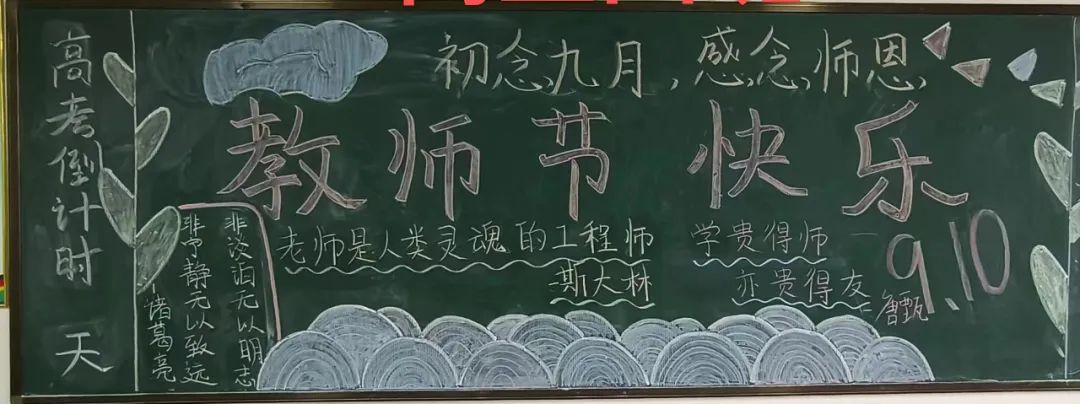 高考倒计时 天
初念九月，感念师恩
教师节快乐
老师是人类灵魂的工程师
-斯大林
学贵得师
亦贵得友
=唐甄
9.10
非淡泊无以明志
非宁静无以致远
-诸葛亮